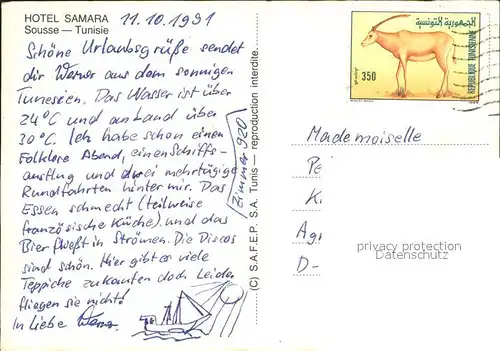 HOTEL SAMARA
Sousse — Tunisie
11.10.1991
Schöne Urlaubsgrüße sendet
dir Werner aus dem sonnigen
Tunesien. Das Wasser ist über
24°C und an Land über
30°C. Ich habe schon einen
Folklore Abend, einen Schiffs-
ausflug und zwei mehrtägige
Rundfahrten hinter mir. Das
Essen schmeckt (teilweise
französische Küche) und das
Bier fließt in Strömen. Die Discos
sind schön. Hier gibt es viele
Teppiche zu kaufen doch leider
fliegen sie nicht!
In Liebe Werner
Zimmer 920
(C) S.A.F.E.P. S.A. Tunis — reproduction interdite
الجمهورية التونسية
REPUBLIQUE TUNISIENNE
350
Mademoiselle
Pe
K
Ag
D-
privacy protection
Datenschutz